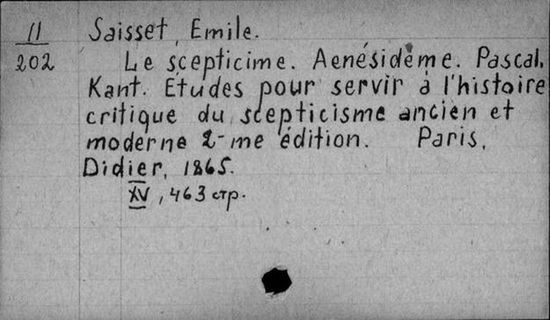 11
202
Saisset, Emile.
Le scepticime. Aenésidème. Pascal.
Kant. Etudes pour servir à l'histoire
critique du scepticisme ancien et
moderne 2-me édition. Paris,
Didier, 1865.
XV, 463 стр.